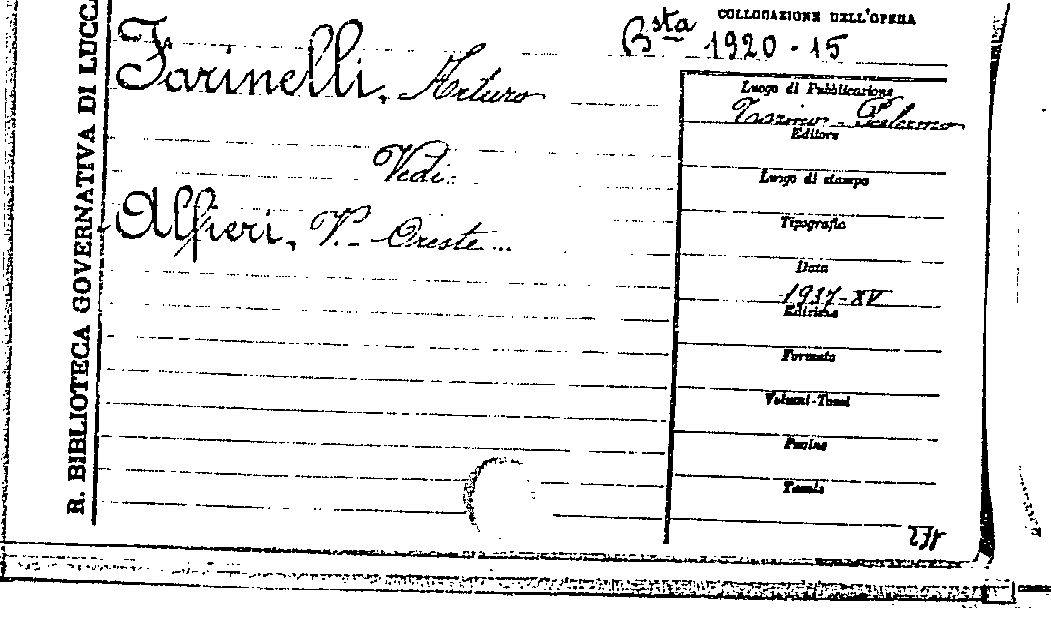 R. BIBLIOTECA GOVERNATIVA DI LUCCA
COLLOCAZIONE DELL'OPERA
Bsta 1920-15
Farinelli, Arturo
Vedi:
Alfieri, V. - Oreste...
Luogo di Pubblicazione
Torino - Palermo
Editore
Luogo di stampa
Tipografia
Data
1937-XV
Edizione
Formato
Volumi-Tomi
Pagine
Tavole